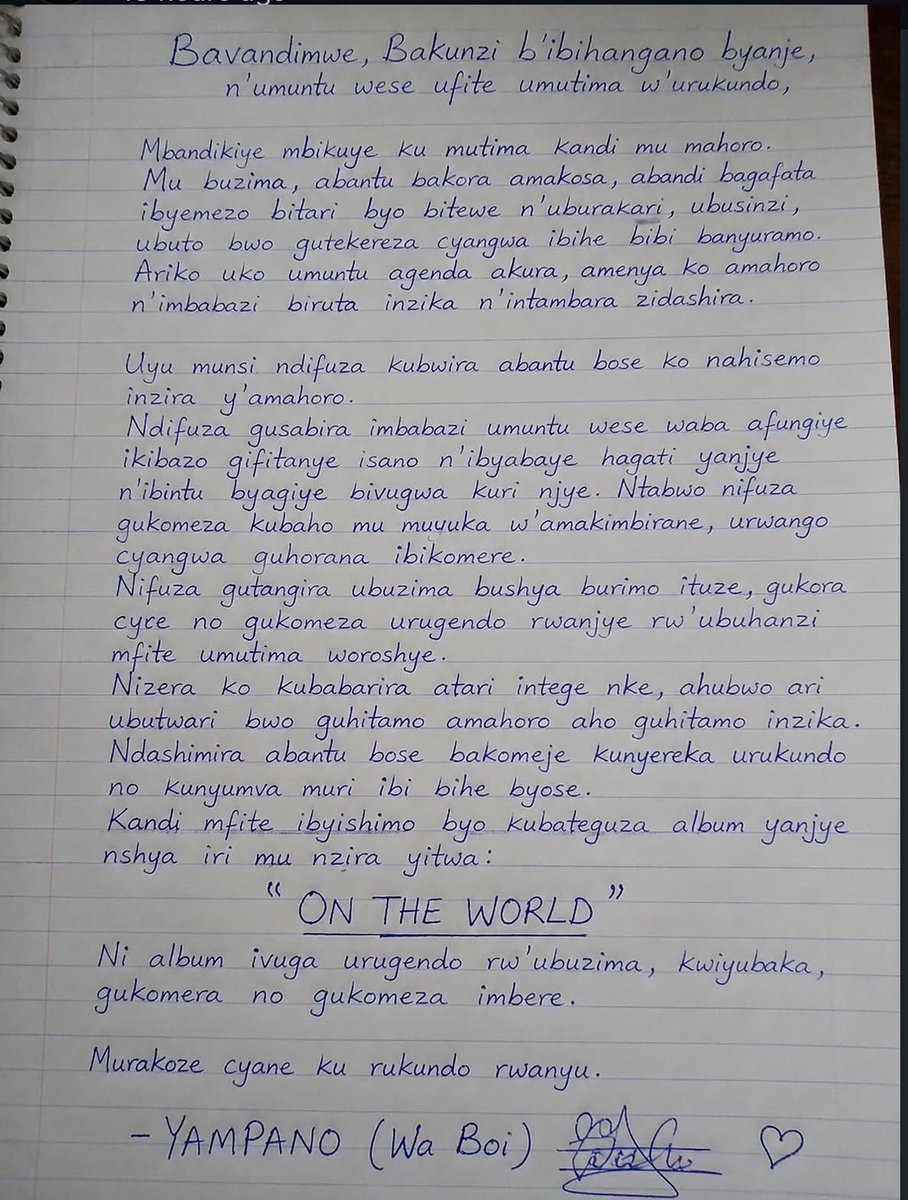 Bavandimwe, Bakunzi b'ibihangano byanje,
n'umuntu wese ufite umutima w'urukundo,
Mbandikiye mbikuye ku mutima kandi mu mahoro.
Mu buzima, abantu bakora amakosa, abandi bagafata
ibyemezo bitari byo bitewe n'uburakari, ubusinzi,
ubuto bwo gutekereza cyangwa ibihe bibi banyuramo.
Ariko uko umuntu agenda akura, amenya ko amahoro
n'imbabazi biruta inzika n'intambara zidashira.
Uyu munsi ndifuza kubwira abantu bose ko nahisemo
inzira y'amahoro.
Ndifuza gusabira imbabazi umuntu wese waba afungiye
ikibazo gifitanye isano n'ibyabaye hagati yanjye
n'ibintu byagiye bivugwa kuri njye. Ntabwo nifuza
gukomeza kubaho mu muyuka w'amakimbirane, urwango
cyangwa guhorana ibikomere.
Nifuza gutangira ubuzima bushya burimo ituze, gukora
cyce no gukomeza urugendo rwanjye rw'ubuhanzi
mfite umutima woroshye.
Nizera ko kubabarira atari intege nke, ahubwo ari
ubutwari bwo guhitamo amahoro aho guhitamo inzika.
Ndashimira abantu bose bakomeje kunyereka urukundo
no kunyumva muri ibi bihe byose.
Kandi mfite ibyishimo byo kubateguza album yanjye
nshya iri mu nzira yitwa:
"ON THE WORLD"
Ni album ivuga urugendo rw'ubuzima, kwiyubaka,
gukomera no gukomeza imbere.
Murakoze cyane ku rukundo rwanyu.
- YAMPANO (Wa Boi)